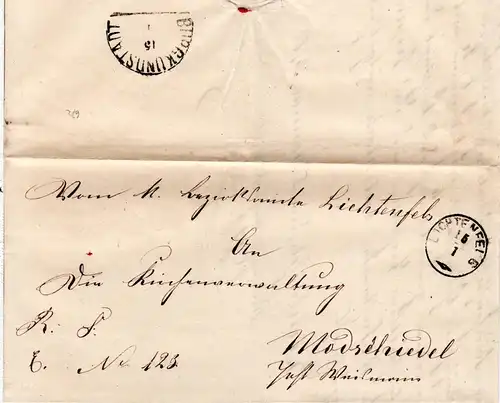 BURGKUNDSTADT
15
1
Vom k. Bezirksamte Lichtenfels
LICHTENFELS
15
1
An
Die Kirchenverwaltung
R. S.
Modschiedel
E. No 123.
Post Weismain